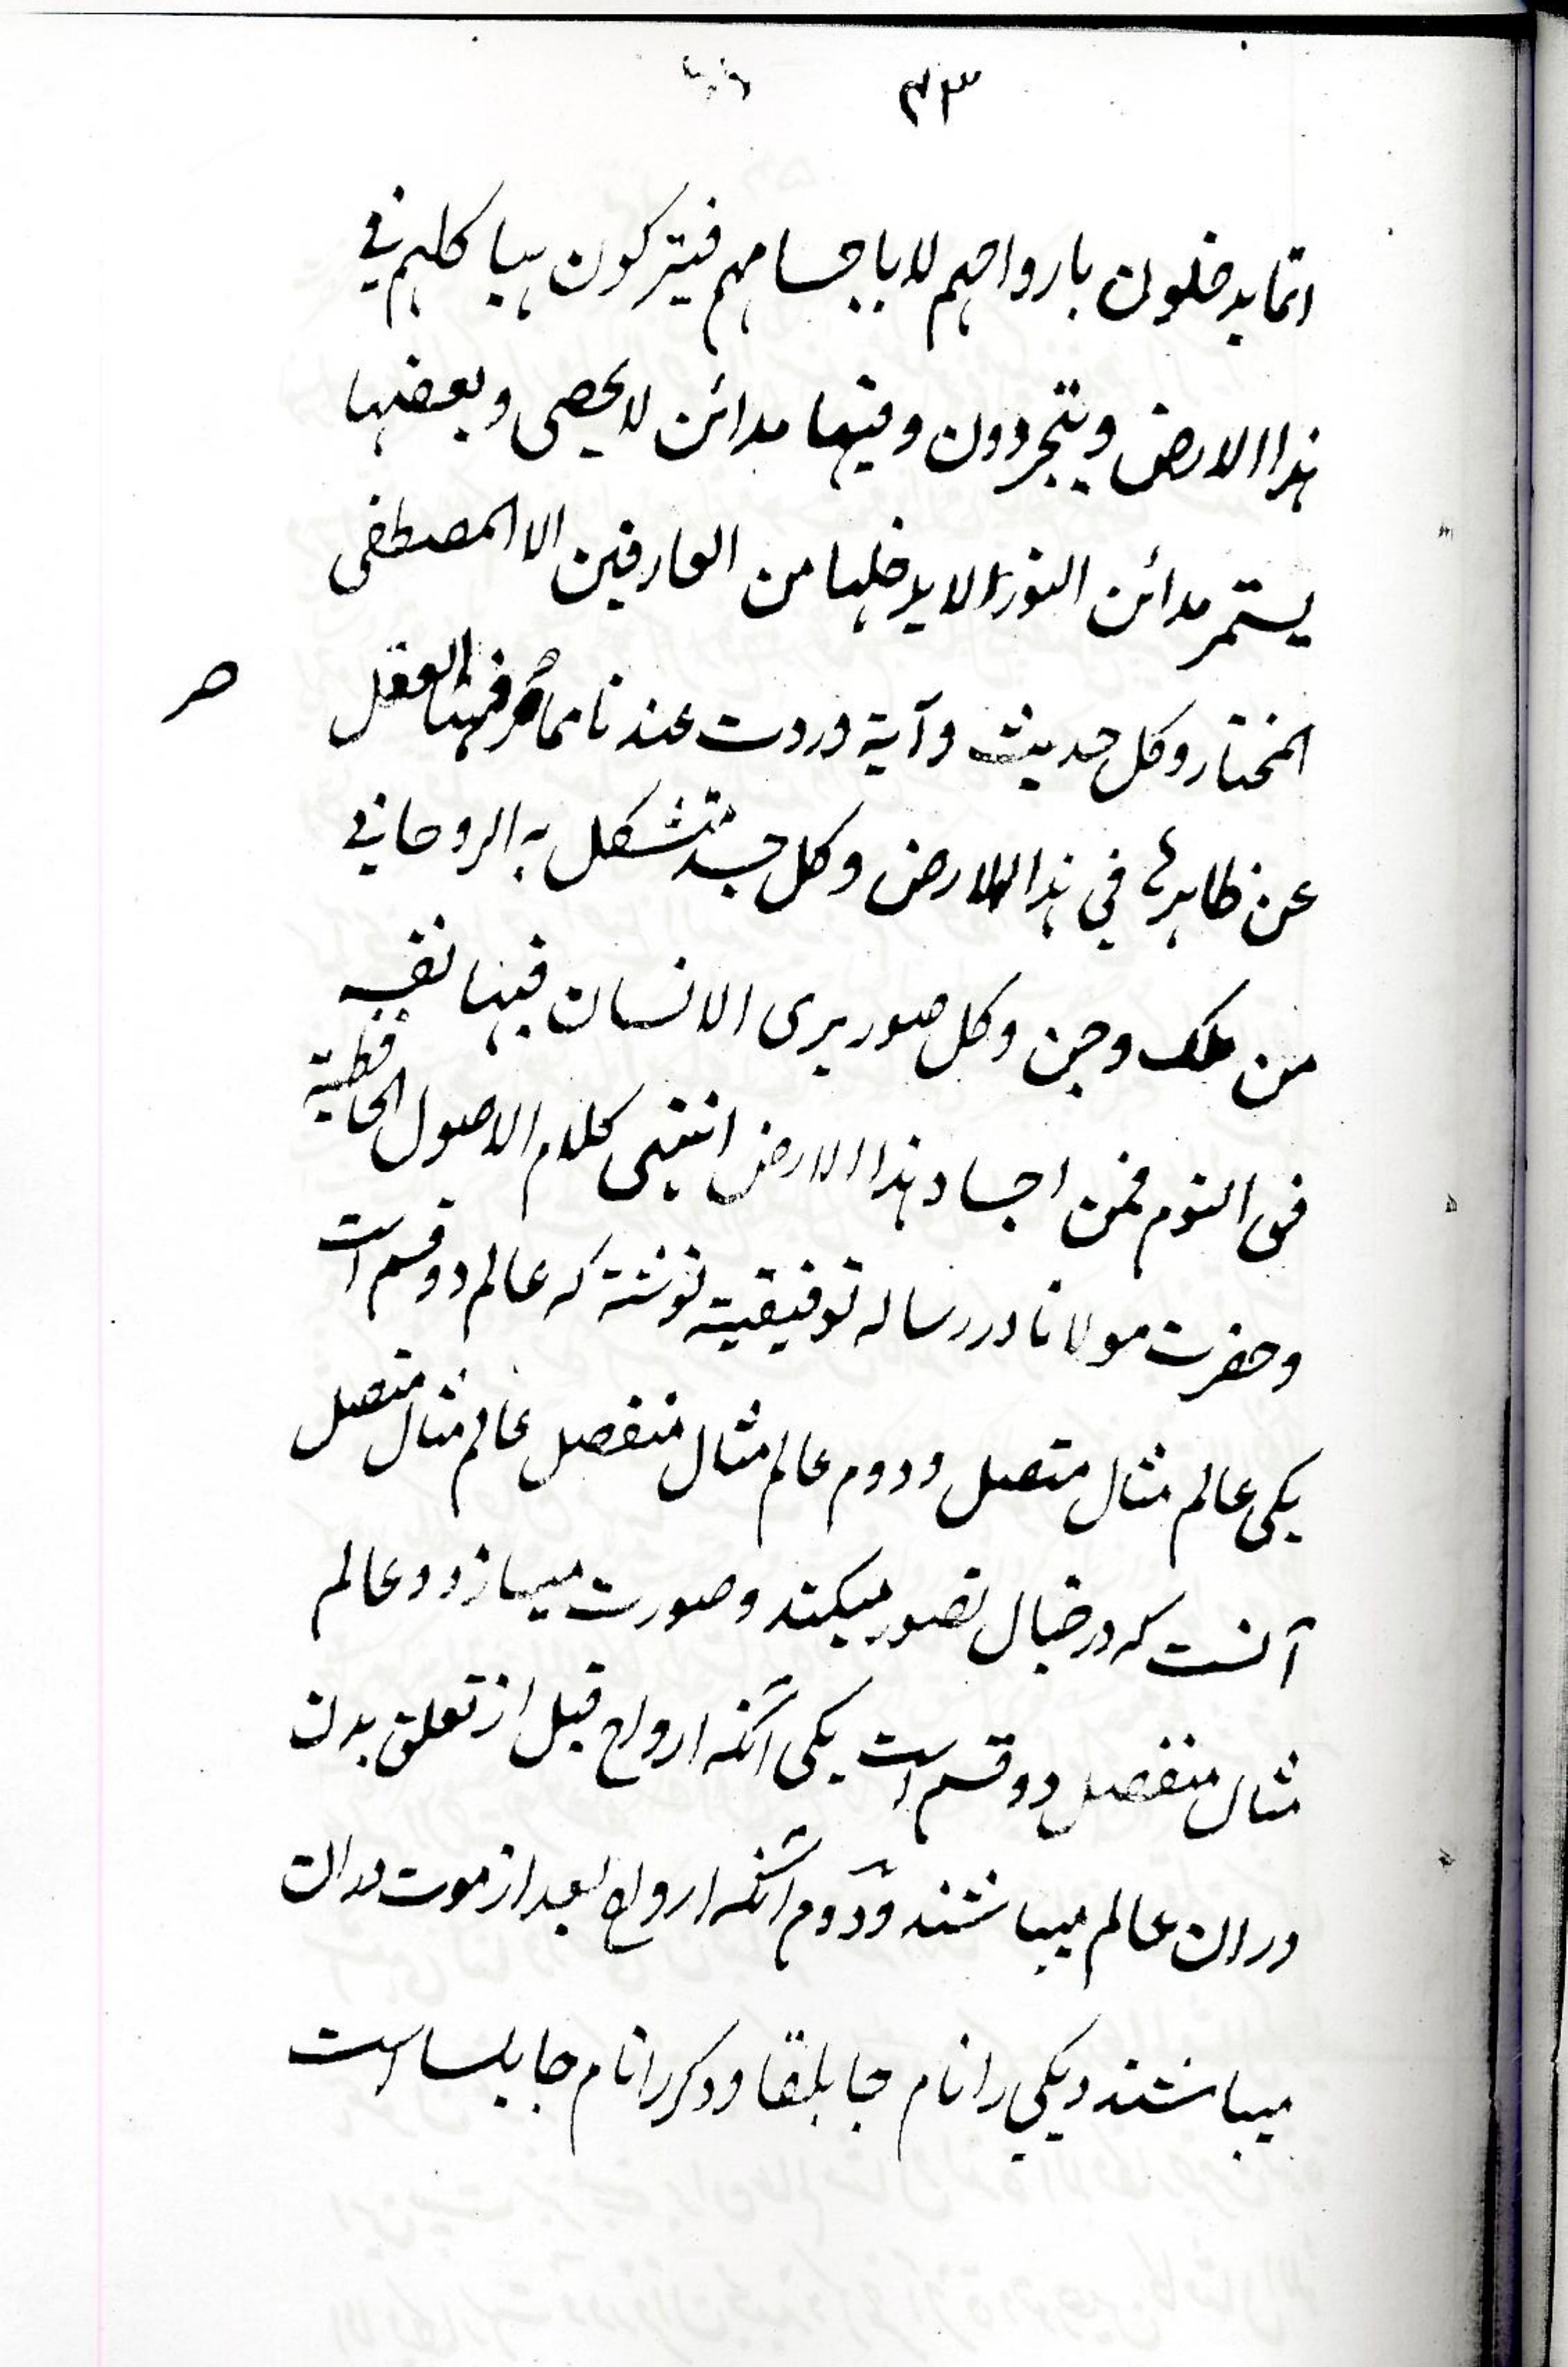 ۴۳
انما یدخلون بارواحهم لا باجسامهم فیترکون هیاکلهم فی
هذا الارض و یتجردون و فیها مدائن لا یحصی و بعضها
یستمر مدائن النور لا یدخلها من العارفین الا المصطفی
المختار و کل حدیث و آیة وردت عندنا مما صرفها العقل
ص
عن ظاهرها فی هذا الارض و کل جسد تشکل به الروحانی
من ملک و جن و کل صور یری الانسان فیها نفسه
فی النوم فمن اجساد هذا الارض انتهی کلام الاصول الحافظیة
و حضرت مولانا در رساله توفیقیة نوشته که عالم دو قسم است
یکی عالم مثال متصل و دوم عالم مثال منفصل عالم مثال متصل
آنست که در خیال تصور میکند و صورت میسازد و عالم
مثال منفصل دو قسم است یکی آنکه ارواح قبل از تعلق بدن
در ان عالم میباشند و دوم آنکه ارواح بعد از موت در ان
میباشند و یکی را نام جابلقا و دکر را نام جابلسا است